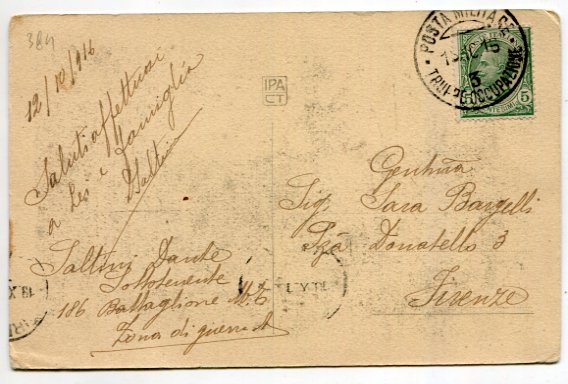 384
12/10/916
Saluti affettuosi
a Lei e famiglia
DSaltini
Saltini Dante
Sottotenente
186 Battaglione M.T.
Zona di guerra
IPA
CT
POSTA MILITARE
15
3
TRUPPE OCCUPAZIONE
5
CENTESIMI
Gentma
Sig. Sara Bargelli
Pza Donatello 3
Firenze